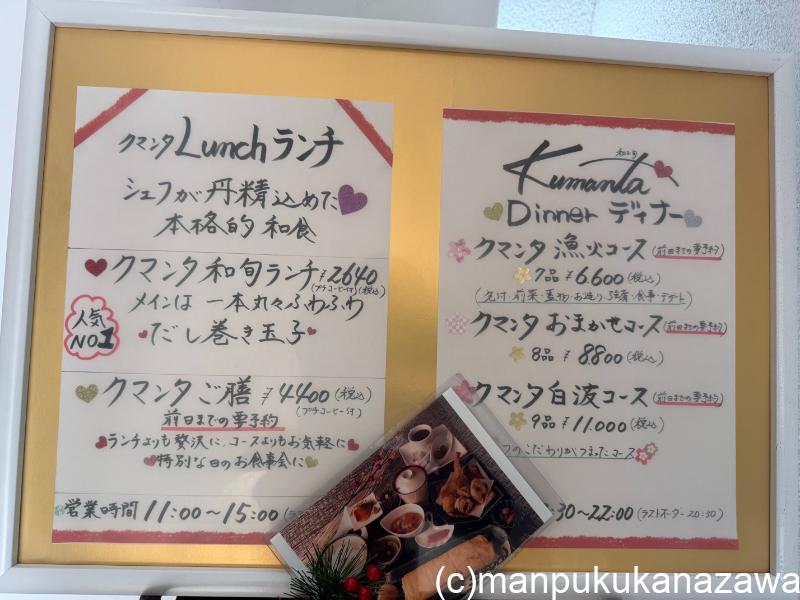 クマンタ Lunch ランチ
シェフが丹精込めた
本格的 和食
クマンタ 和旬ランチ ¥2640
(プチコーヒー付) (税込)
人気
NO.1
メインは 一本丸々ふわふわ
だし巻き玉子
クマンタ ご膳 ¥4400 (税込)
(プチコーヒー付)
前日までの要予約
ランチよりも贅沢に、コースよりもお気軽に
特別な日のお食事会に
営業時間 11:00〜15:00
Kumanta
Dinner ディナー
クマンタ 漁火コース (前日までの要予約)
7品 ¥6.600 (税込)
クマンタ おまかせコース (前日までの要予約)
8品 ¥8800 (税込)
クマンタ 白波コース (前日までの要予約)
9品 ¥11.000 (税込)
フのこだわりがつまったコース
:30〜22:00 (ラストオーダー 20:30)
(c)manpukukanazawa